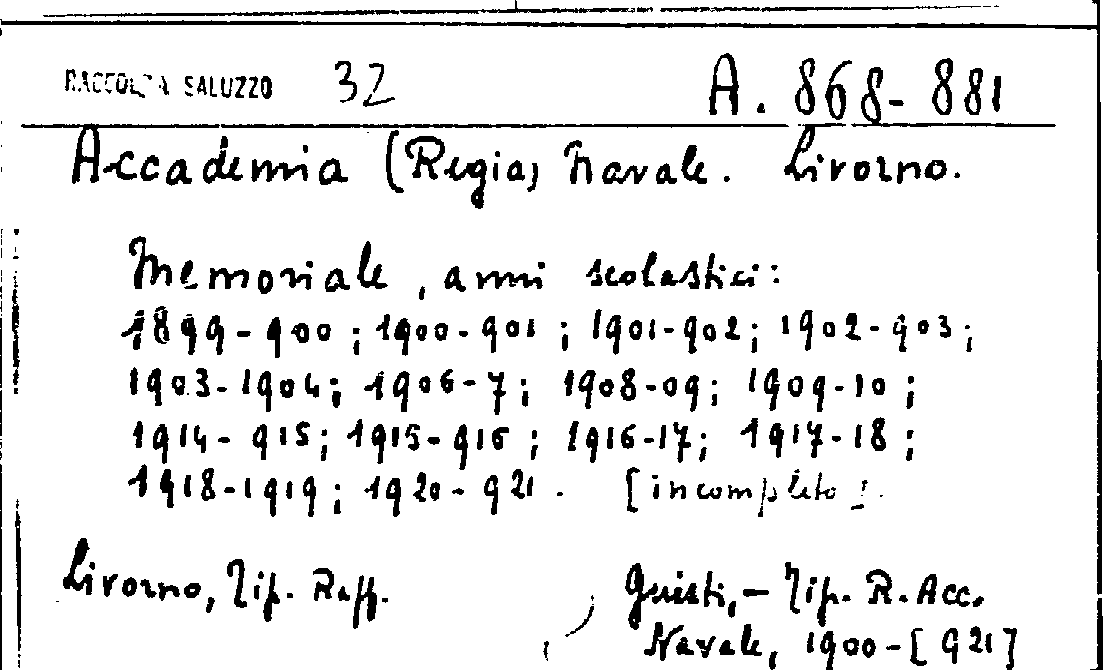 RACCOLTA SALUZZO 32 A. 868-881
Accademia (Regia) Navale. Livorno.
Memoriale, anni scolastici:
1899-900; 1900-901; 1901-902; 1902-903;
1903-1904; 1906-7; 1908-09; 1909-10;
1914-915; 1915-916; 1916-17; 1917-18;
1918-1919; 1920-921. [incompleto].
Livorno, Tip. Raff. Giusti, - Tip. R. Acc.
Navale, 1900-[921]